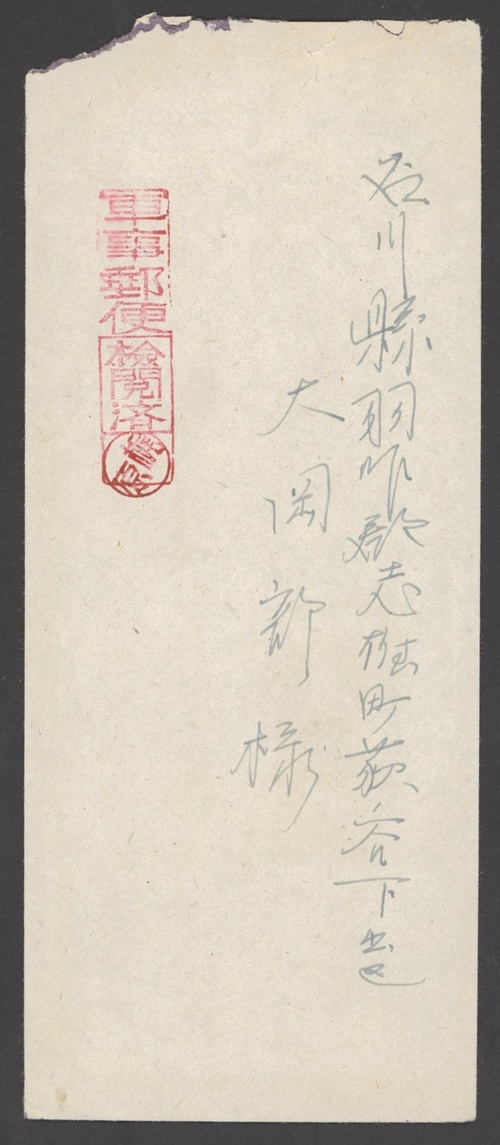 石川縣羽咋郡志雄町荻谷下出
大岡部様
軍事郵便
検閲済